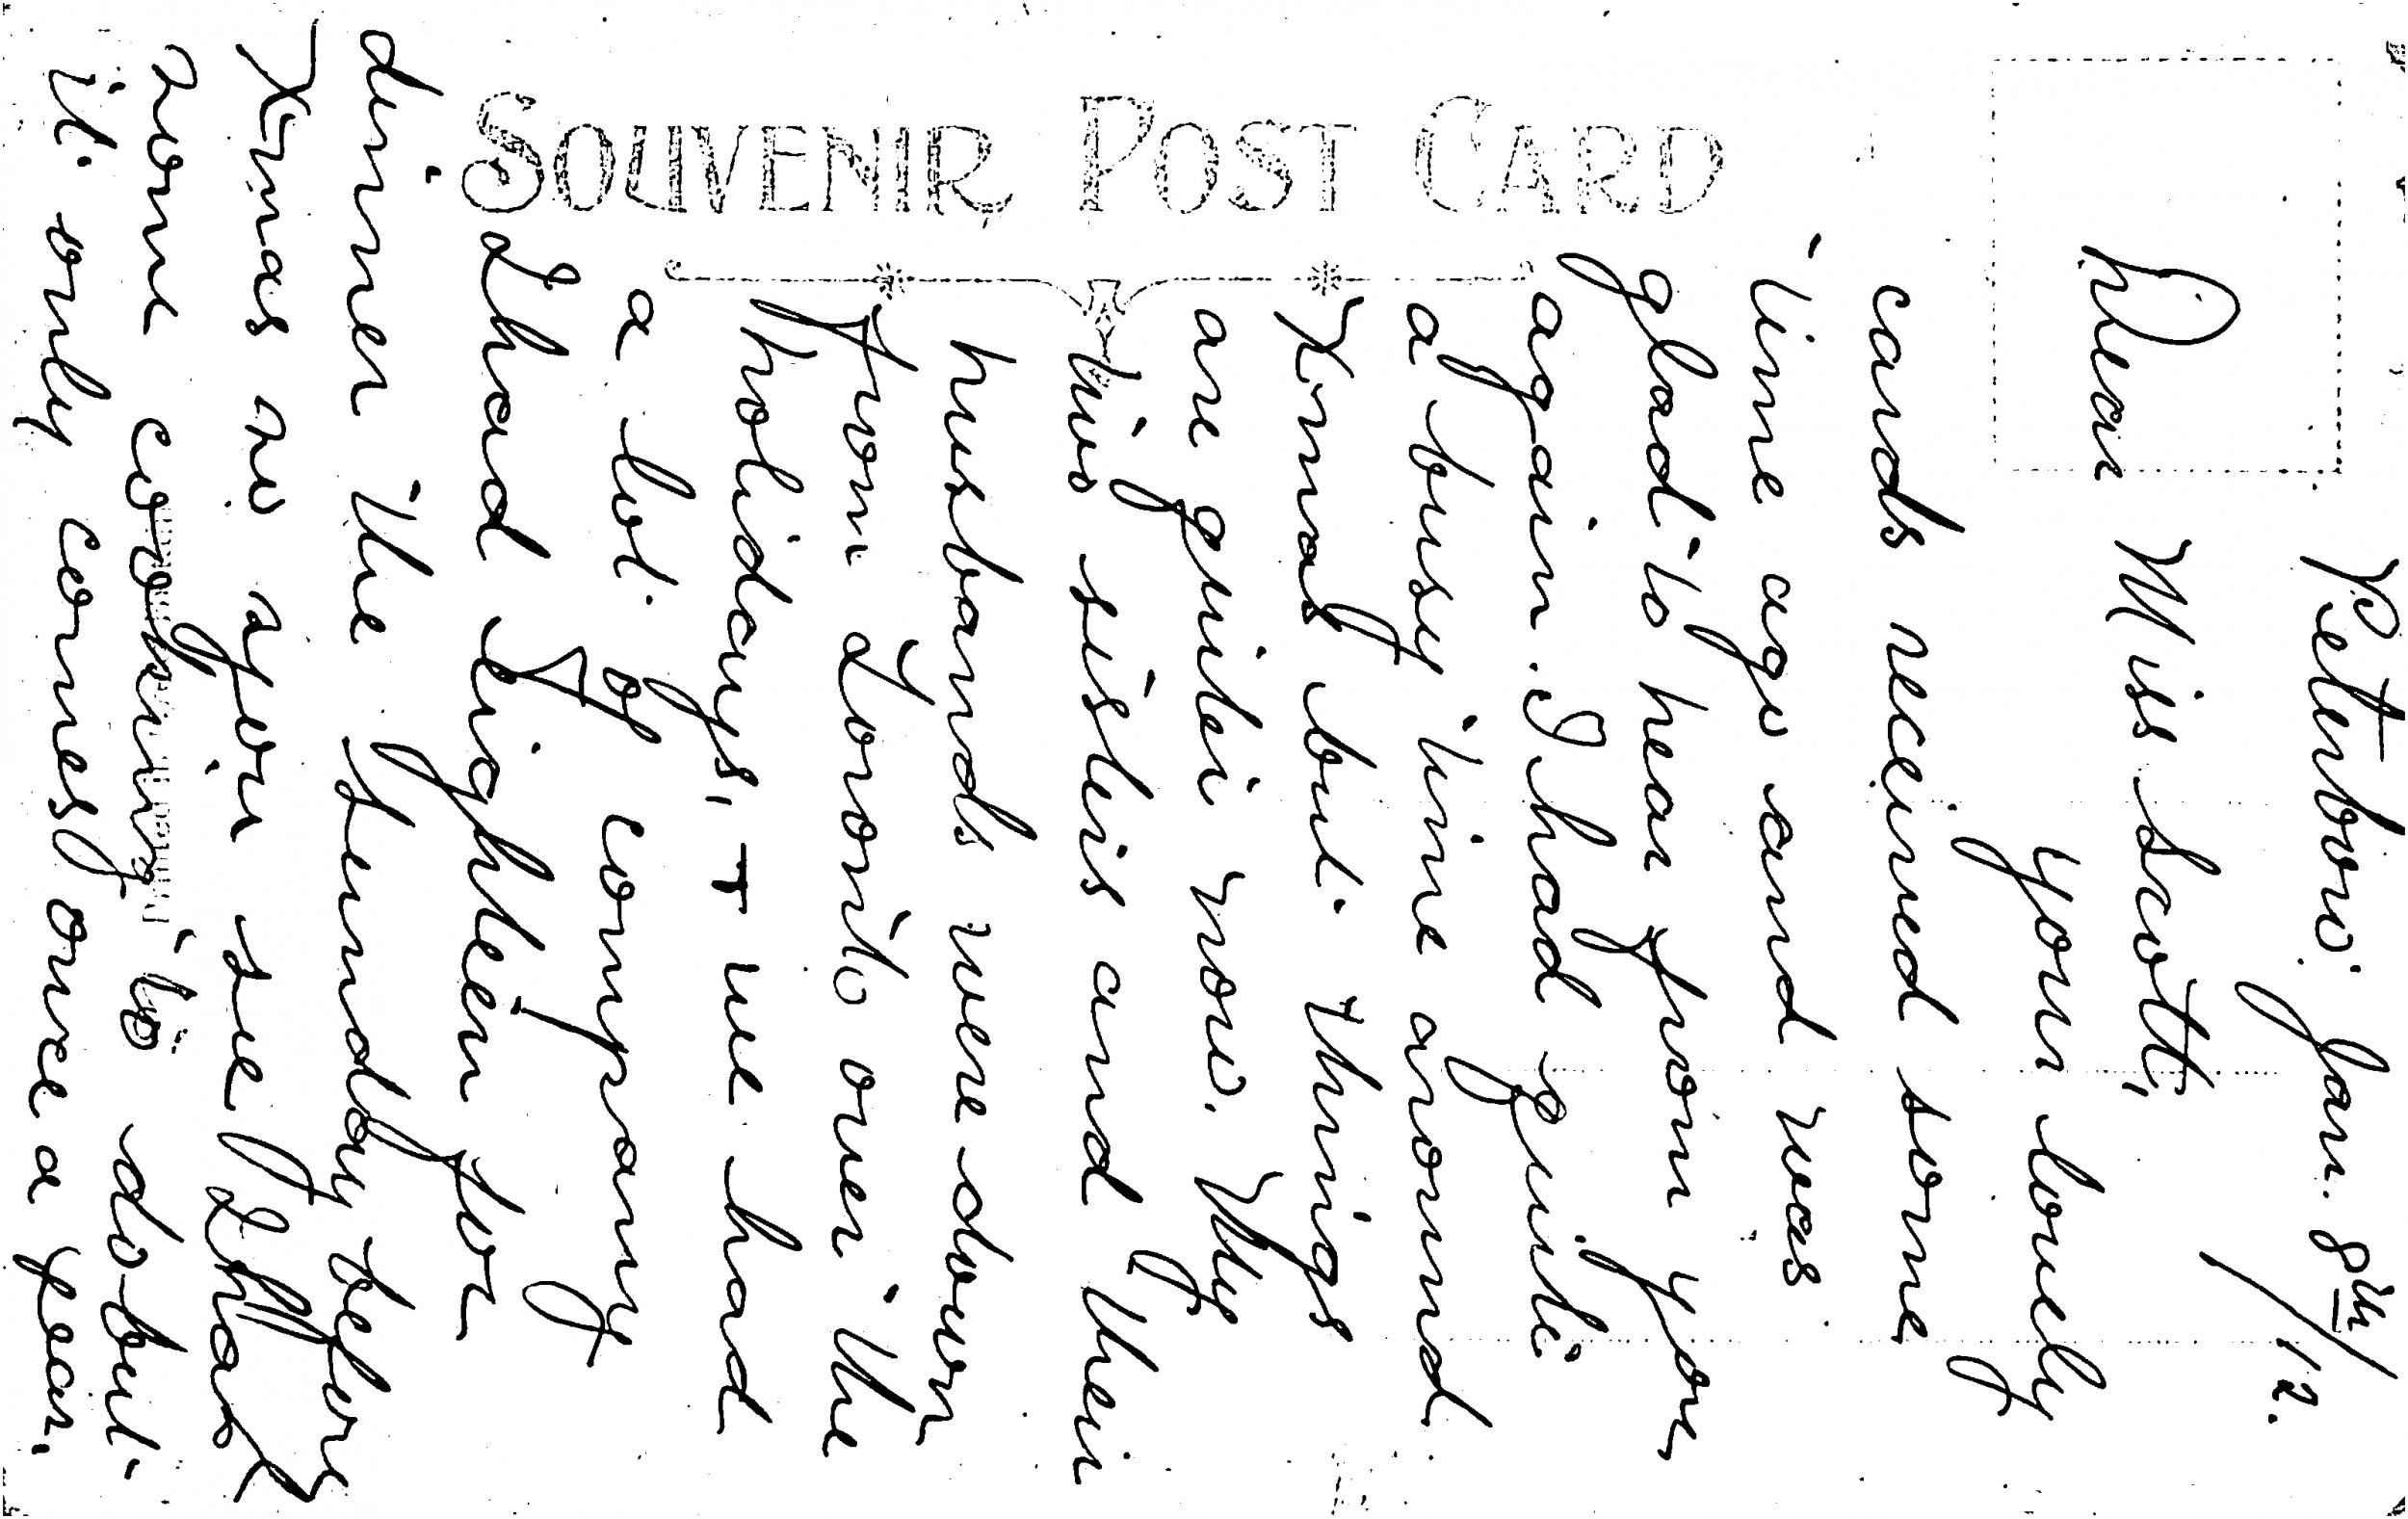 SOUVENIR POST CARD
Peterboro. Jan. 8th/12.
Dear Miss Scott,
your lovely
cards received some
time ago and was
glad to hear from you
again. I had quite
a busy time around
Xmas but things
are quiter now. My
two sisters and their
husbands were down
from Toronto over the
holidays, + we had
a lot of company
I had eighteen for
dinner the Sunday before
Xmas so you see I had
some cooking to do but
it only comes once a year.